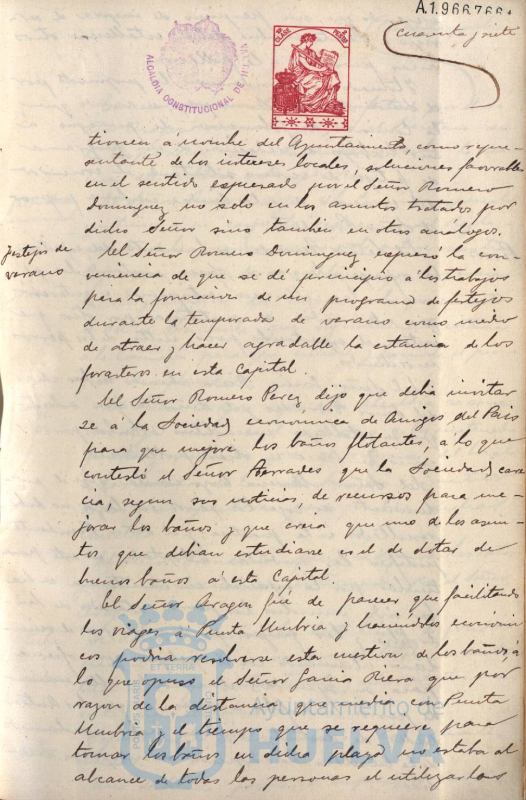 A.1.966,766
cuarenta y siete
ALCALDIA CONSTITUCIONAL DE HUELVA
tionen á nombre del Ayuntamiento, como repre-
sentante de los intereses locales, soluciones favorables
en el sentido espresado por el Señor Romero
Dominguez no solo en los asuntos tratados por
dicho Señor sino tambien en otros análogos.
Festejos de
verano
El Señor Romero Dominguez espresó la con-
veniencia de que se dé principio á los trabajos
para la formacion de un programa de festejos
durante la temporada de verano como medio
de atraer y hacer agradable la estancia de los
forasteros en esta Capital.
El Señor Romero Perez dijo que debia invitar
se á la Sociedad economica de Amigos del Pais
para que mejore los baños flotantes, á lo que
contestó el Señor que la Sociedad care
cia, segun sus noticias, de recursos para me-
jorar los baños y que creia que uno de los asun-
tos que debian estudiarse es el de dotar de
buenos baños á esta Capital.
El Señor Aragon fué de parecer que facilitando
los viages á Punta Umbria y haciendolos económi
cos podria resolverse esta cuestion de los baños á
lo que opuso el Señor Garcia Riera que por
razon de la distancia que media con Punta
Umbria y el tiempo que se requiere para
tomar los baños en dicha playa no estaba al
alcance de todas las personas el utilizarlos
Ayuntamiento de
HUELVA